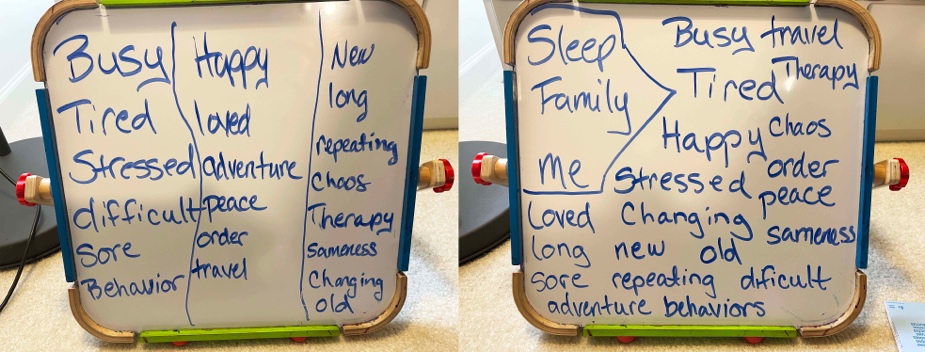 Busy
Tired
Stressed
difficult
Sore
Behavior
Happy
loved
adventure
peace
order
travel
New
long
repeating
Chaos
Therapy
Sameness
Changing
old
Sleep
Family
Me
Busy travel
Tired Therapy
Happy Chaos
Stressed order
peace
Loved Changing sameness
long new old
sore repeating dificult
adventure behaviors